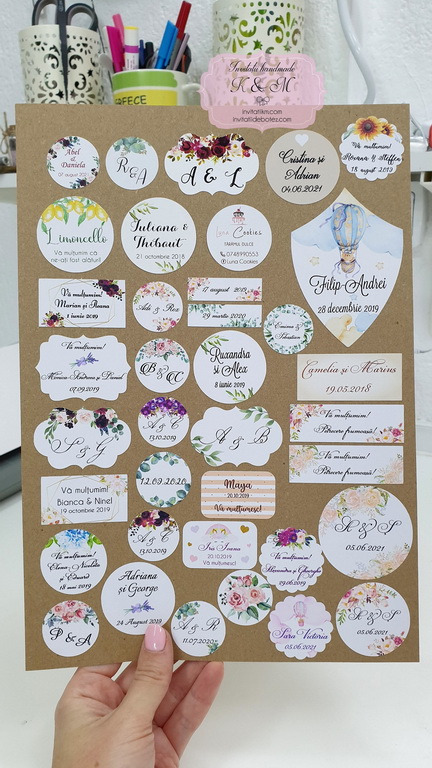 GREECE
Invitatii handmade
K & M
invitatiikm.com
invitatiidebotez.com
Abel
&
Daniela
17 august 2021
R & A
A & L
Cristina și
Adrian
04.06.2021
Vă mulțumim!
Roxana & Steffen
18 august 2019
Limoncello
Vă mulțumim că
ne-ați fost alături!
Iuliana &
Thibaut
21 octombrie 2018
Luna Cookies
TÂRÂMUL DULCE
0748990553
Luna Cookies
Filip Andrei
28 decembrie 2019
Vă mulțumim!
Marian și Ileana
1 iunie 2019
Adi & Roxi
17 august 2019
29 martie 2020
Emma &
Sebastian
Vă mulțumim!
Monica-Andreea & Daniel
07.09.2019
B & C
Ruxandra
și Alex
8 iunie 2019
Camelia și Marius
19.05.2018
S & G
A & C
13.10.2019
A & B
Vă mulțumim!
Petrecere frumoasă!
Vă mulțumim!
Petrecere frumoasă!
Vă mulțumim!
Bianca & Ninel
19 octombrie 2019
12.09.2020
Maya
20.10.2019
Vă mulțumesc!
A & S
05.06.2021
Vă mulțumim!
Elena-Nicoleta
și Eduard
18 mai 2019
A & C
13.10.2019
Iris Ioana
20.10.2019
Vă mulțumesc!
Vă mulțumim!
Alexandra & Gheorghe
29.06.2019
Adriana
și George
24 August 2019
P & A
A & R
11.07.2020
Sara Victoria
05.06.2021
A & S
05.06.2021